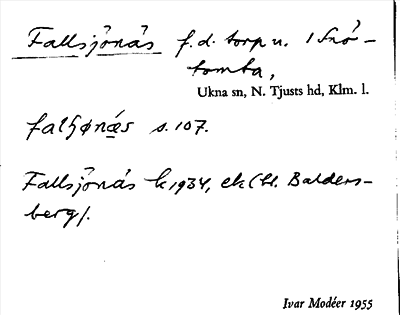 Fallsjönäs f.d. torp u. 1 Snö-
tomta,
Ukna sn, N. Tjusts hd, Klm. l.
falʃønæ̀s s. 107.
Fallsjönäs k 1934, ek (bl. Balders-
berg).
Ivar Modéer 1955